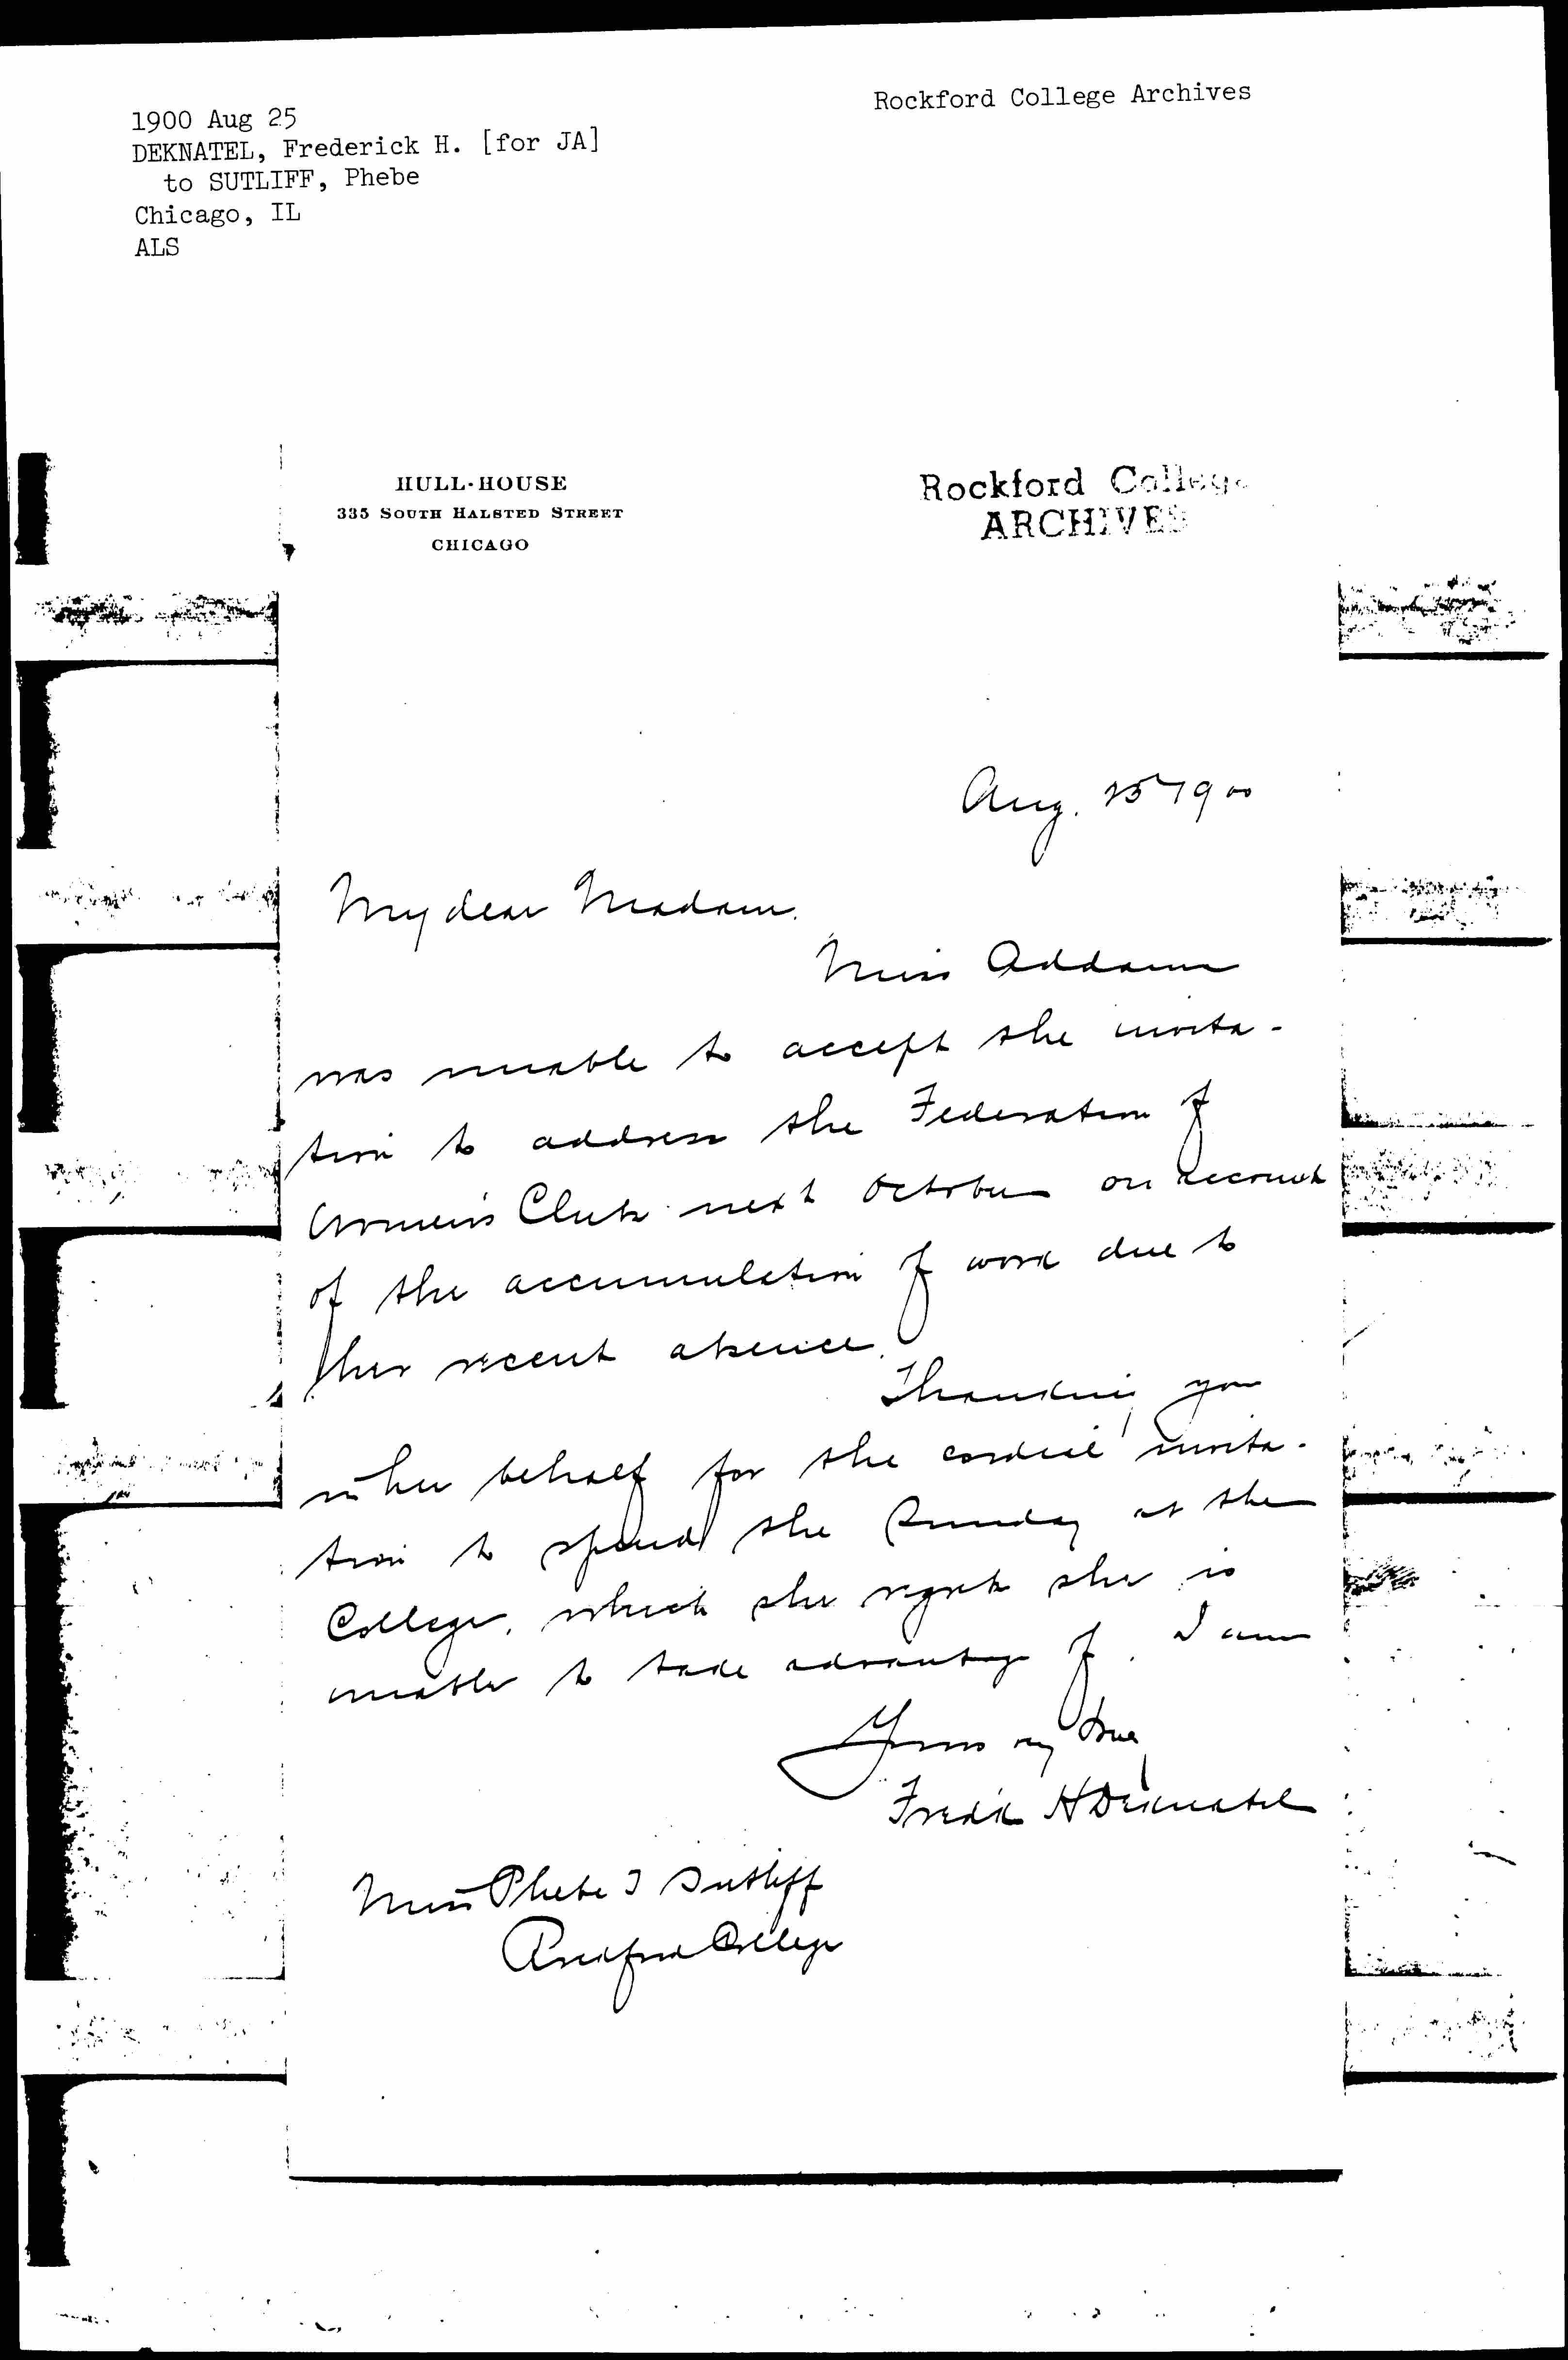 1900 Aug 25
DEKNATEL, Frederick H. [for JA]
to SUTLIFF, Phebe
Chicago, IL
ALS
Rockford College Archives
HULL-HOUSE
335 SOUTH HALSTED STREET
CHICAGO
Rockford College
ARCHIVES
Aug. 25 1900
My dear Madam.
Miss Addams
was unable to accept the invita-
tion to address the Federation of
Women's Clubs next October on account
of the accumulation of work due to
her recent absence.
Thanking you
in her behalf for the cordial invita-
tion to spend the Sunday at the
College, which she regrets she is
unable to take advantage of. I am
Yours very truly
Fredk H Deknatel
Miss Phebe T Sutliff
Rockford College